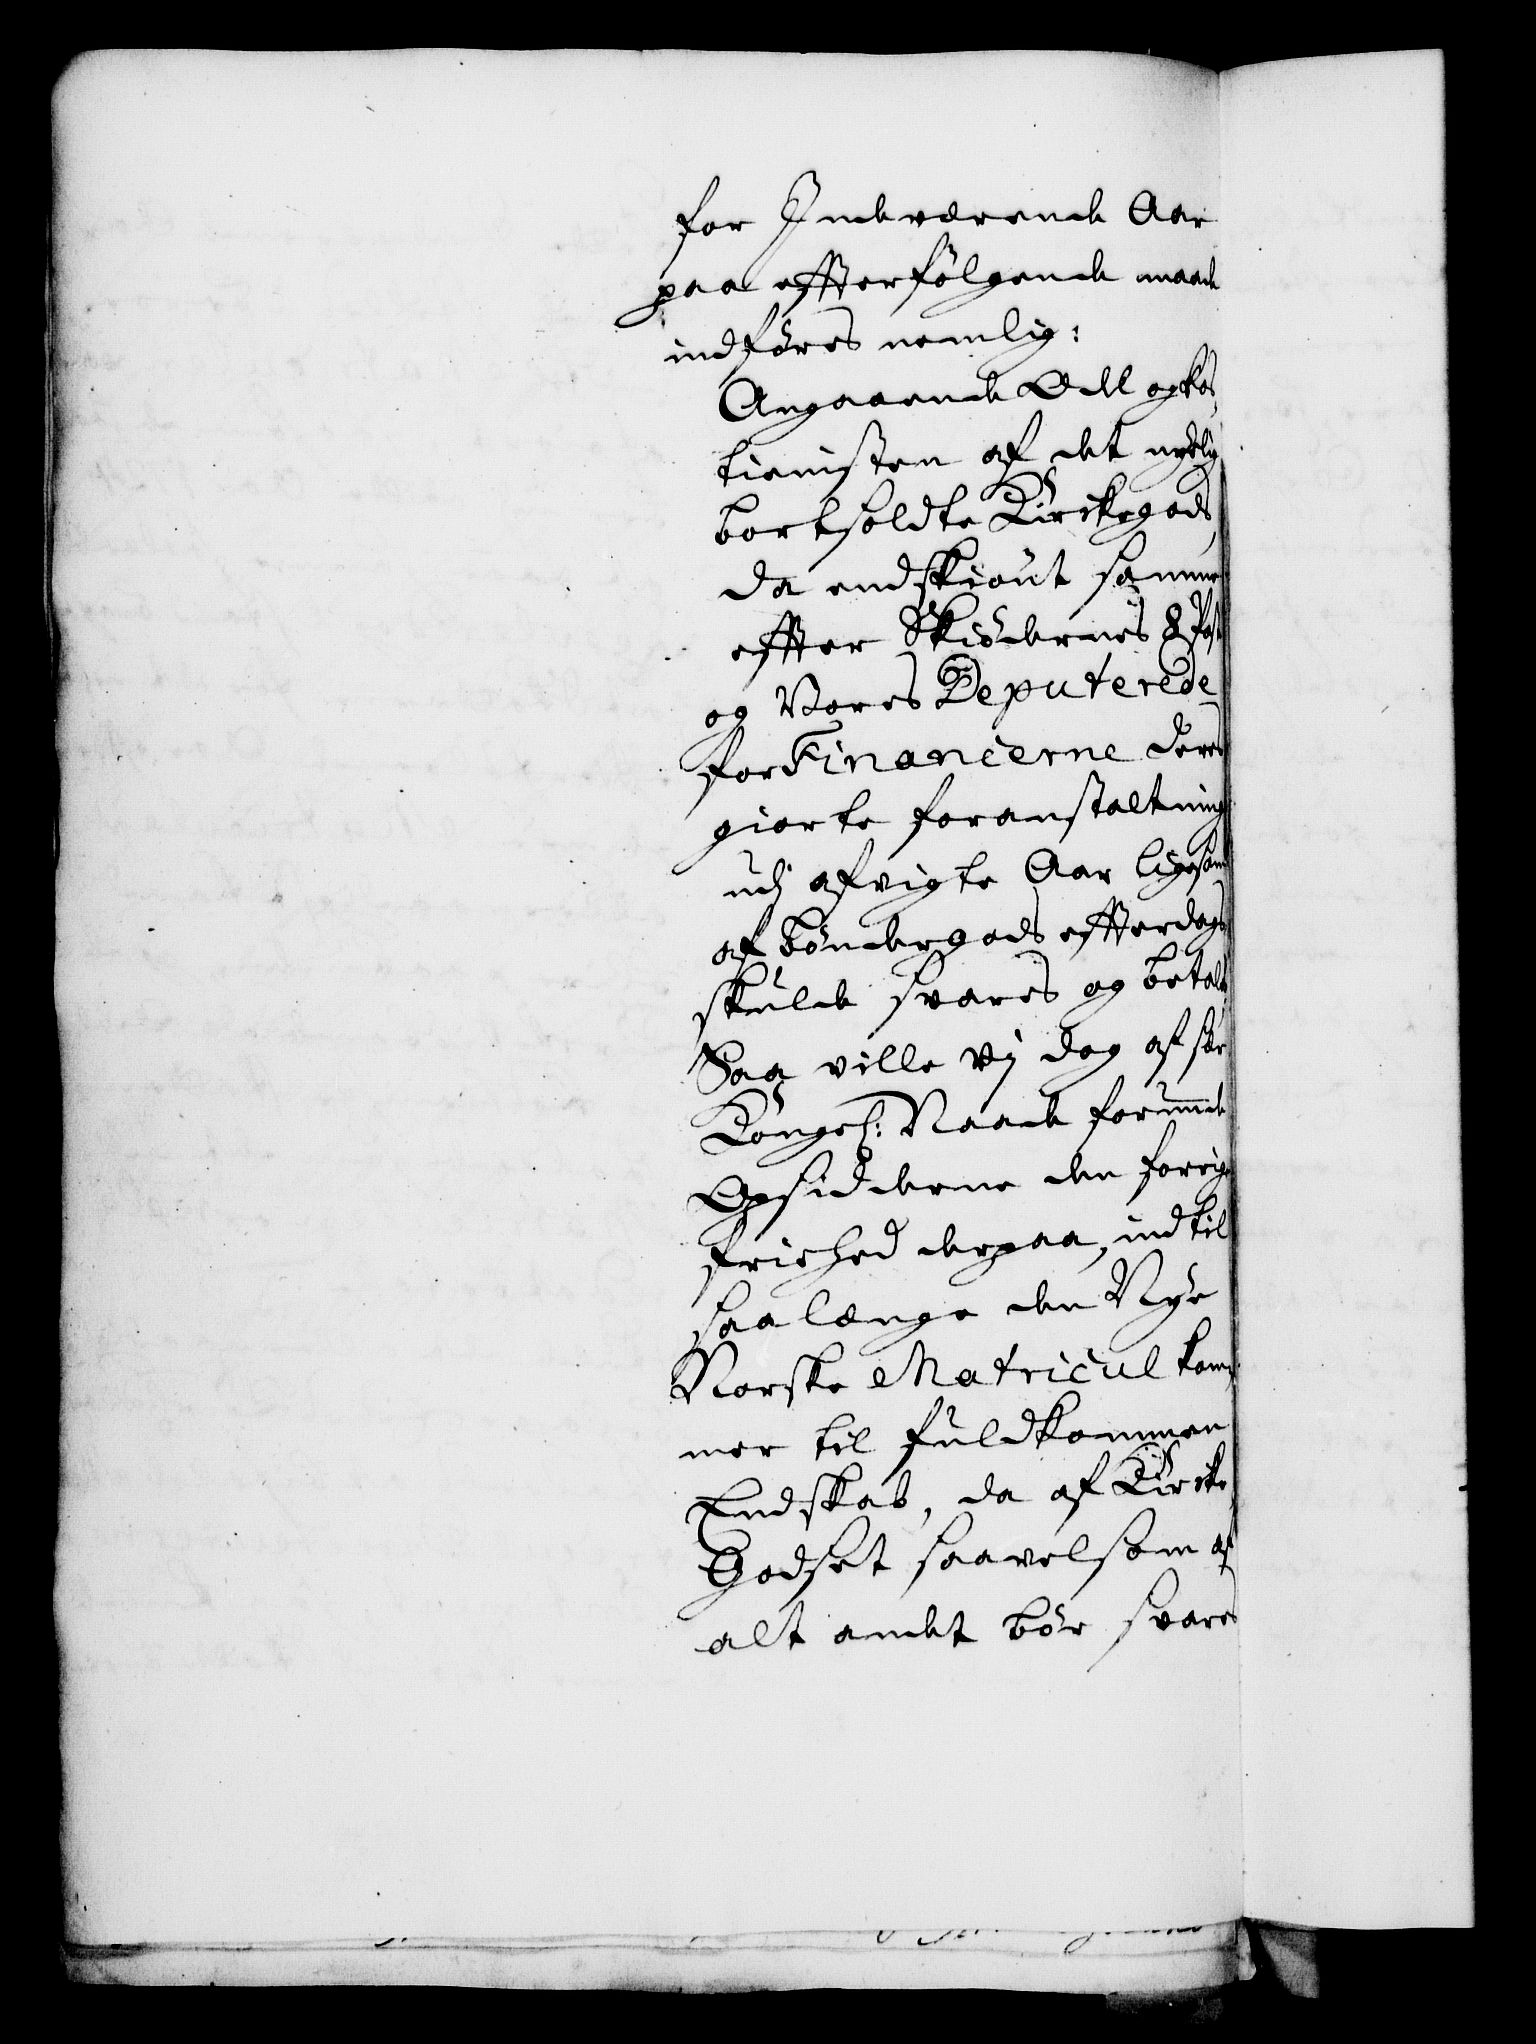 for Indeværende Aar
paa effterfölgende maade
indföres nemlig:
Angaaende Odell og Ros-
tienisten af det nyelig
bortsoldte Kirckegods,
da endskiönt samme
effter Skiödernes 8 Post
og Vores Deputerede
for Financerne deres
giorte foranstaltning
udj afvigte Aar ligesom
af böndergods effterdags
skulde svares og betales
Saa ville Vj dog af sær
Kongel: Naade forunde
Opsidderne den forrige
friehed derpaa, indtil
saalænge den Nye
Norske Matricul kom-
mer til fuldkommen
Endskab, da af Kircke
Godset saavelsom af
alt andet bör svares